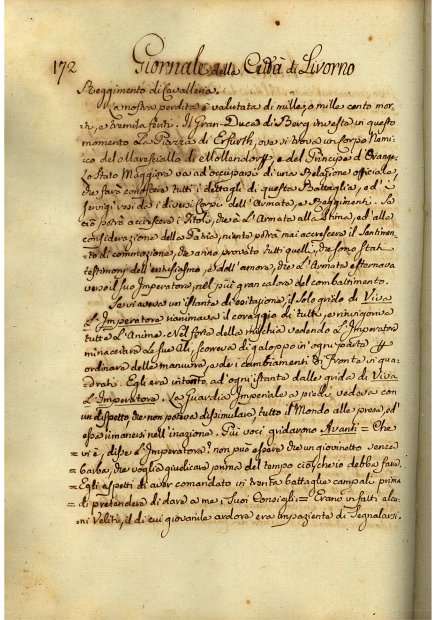 172 Giornale della Città di Livorno
Reggimento di Cavalleria.
La nostra perdita è valutata di mille, o mille cento mor=
ti, e tremila feriti. Il Gran-Duca di Berg investe in questo
momento La Piazza di Erfurth, ove si trova un Corpo Nemi=
co del Maresciallo di Mollendorff, e del Principe d'Orange.
Lo Stato Maggiore va ad occuparsi di una Relazione officiale,
che farà conoscere tutti i dettagli di questa Battaglia, ed i
servigi resi da i diversi Corpi dell'Armata, e Reggimenti. Se
ciò potrà accrescere i Titoli, che à L'Armata alla Stima, ed alla
considerazione della Patria, niente potrà mai accrescere il Sentimen=
to di commozione, che anno provato tutti quelli, che sono stati
testimonj dell'entusiasmo, e dell'amore, che L'Armata esternava
verso il suo Imperatore, nel più gran calore del combattimento.
Se vi aveva un'istante di esitazione, il solo grido di Viva
L'Imperatore rianimava il coraggio di tutti, e rinvigoriva
tutte L'Anime. Nel forte della mischia vedendo L'Imperatore
minacciate Le sue Ali, scorreva di galoppo in questa parte
ordinare delle manuvre, e de i cambiamenti di Fronte in qua=
drati. Egli era intento, ad ogni istante dalle grida di Viva
L'Imperatore. La Guardia Imperiale a piedi vedeva con
un dispetto, che non poteva dissimulare tutto il Mondo alle prese, ed
essa rimanersi nell'inazione. Più voci gridarono Avanti = Che
= vi è, disse L'Imperatore; non può essere che un giovinetto senza
= barba, che voglia giudicare prima del tempo ciò, che io debba fare.
= Egli aspetti di aver comandato in trenta battaglie campali, prima
= di pretendere di dare a me i Suoi Consigli = Erano infatti alcu=
ni Veliti, il di cui giovanile ardore era impaziente di Segnalarsi.